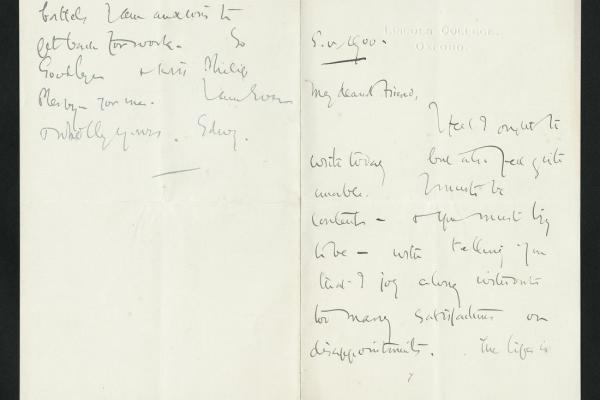 battels. I am anxious to
get back for work. So
Goodbye & kiss Philip
for me. I am Ever
& wholly yours. Edwy.
LINCOLN COLLEGE,
OXFORD.
5. v. 1900.
My dearest Friend,
I feel I ought to
write today but also feel quite
unable. I must be
contents — & you must try
to be — with telling you
that I jog along without
too many satisfactions or
disappointments. The life is